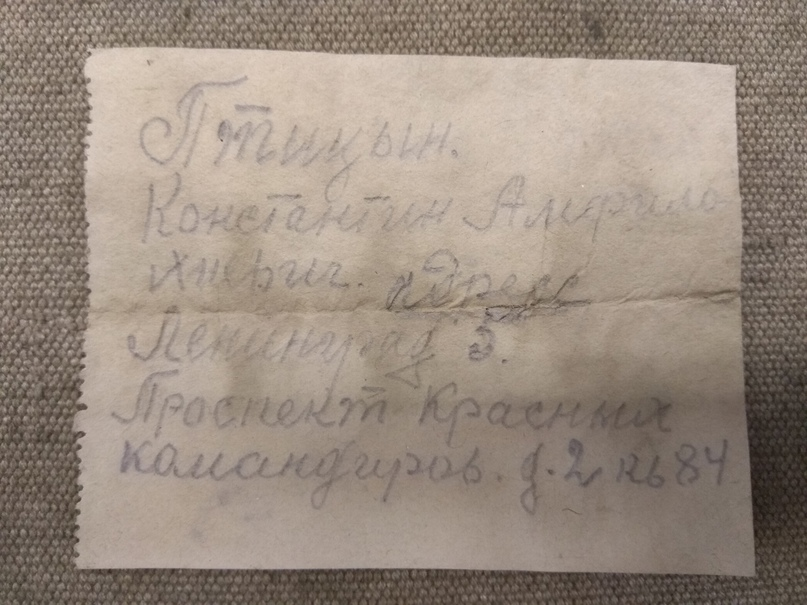 Птицын.
Константин Амфило
хньич. адрес
Ленинград 5.
Проспект Красных
командиров. д. 2 кв 84